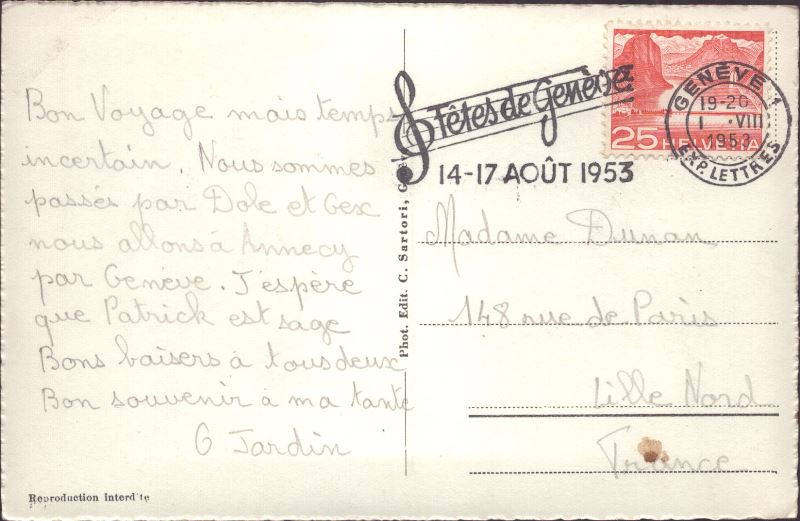 Bon Voyage mais temps
incertain. Nous sommes
passés par Dole et Gex
nous allons à Annecy
par Genève. J'espère
que Patrick est sage
Bons baisers à tous deux
Bon souvenir à ma tante
G Jardin
Reproduction interdite
Phot. Edit. C. Sartori, Genève
Fêtes de Genève
14-17 AOÛT 1953
GENÈVE 1
19-20
1 · VIII
1953
EXP. LETTRES
25 HELVETIA
Madame Dunan
148 rue de Paris
Lille Nord
France